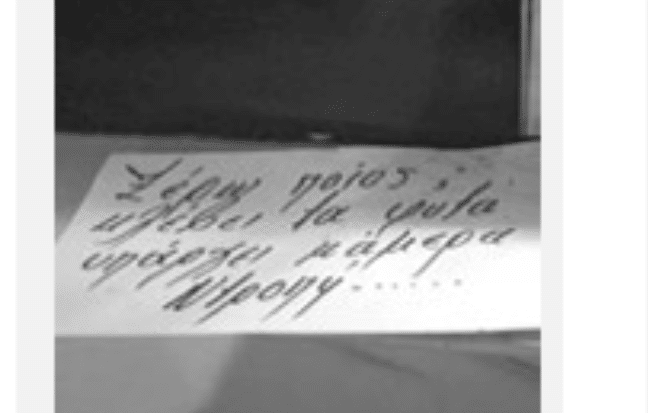 Ξέρω ποιος
κλέβει τα φυτα
υπάρχει κάμερα
Ντροπη......